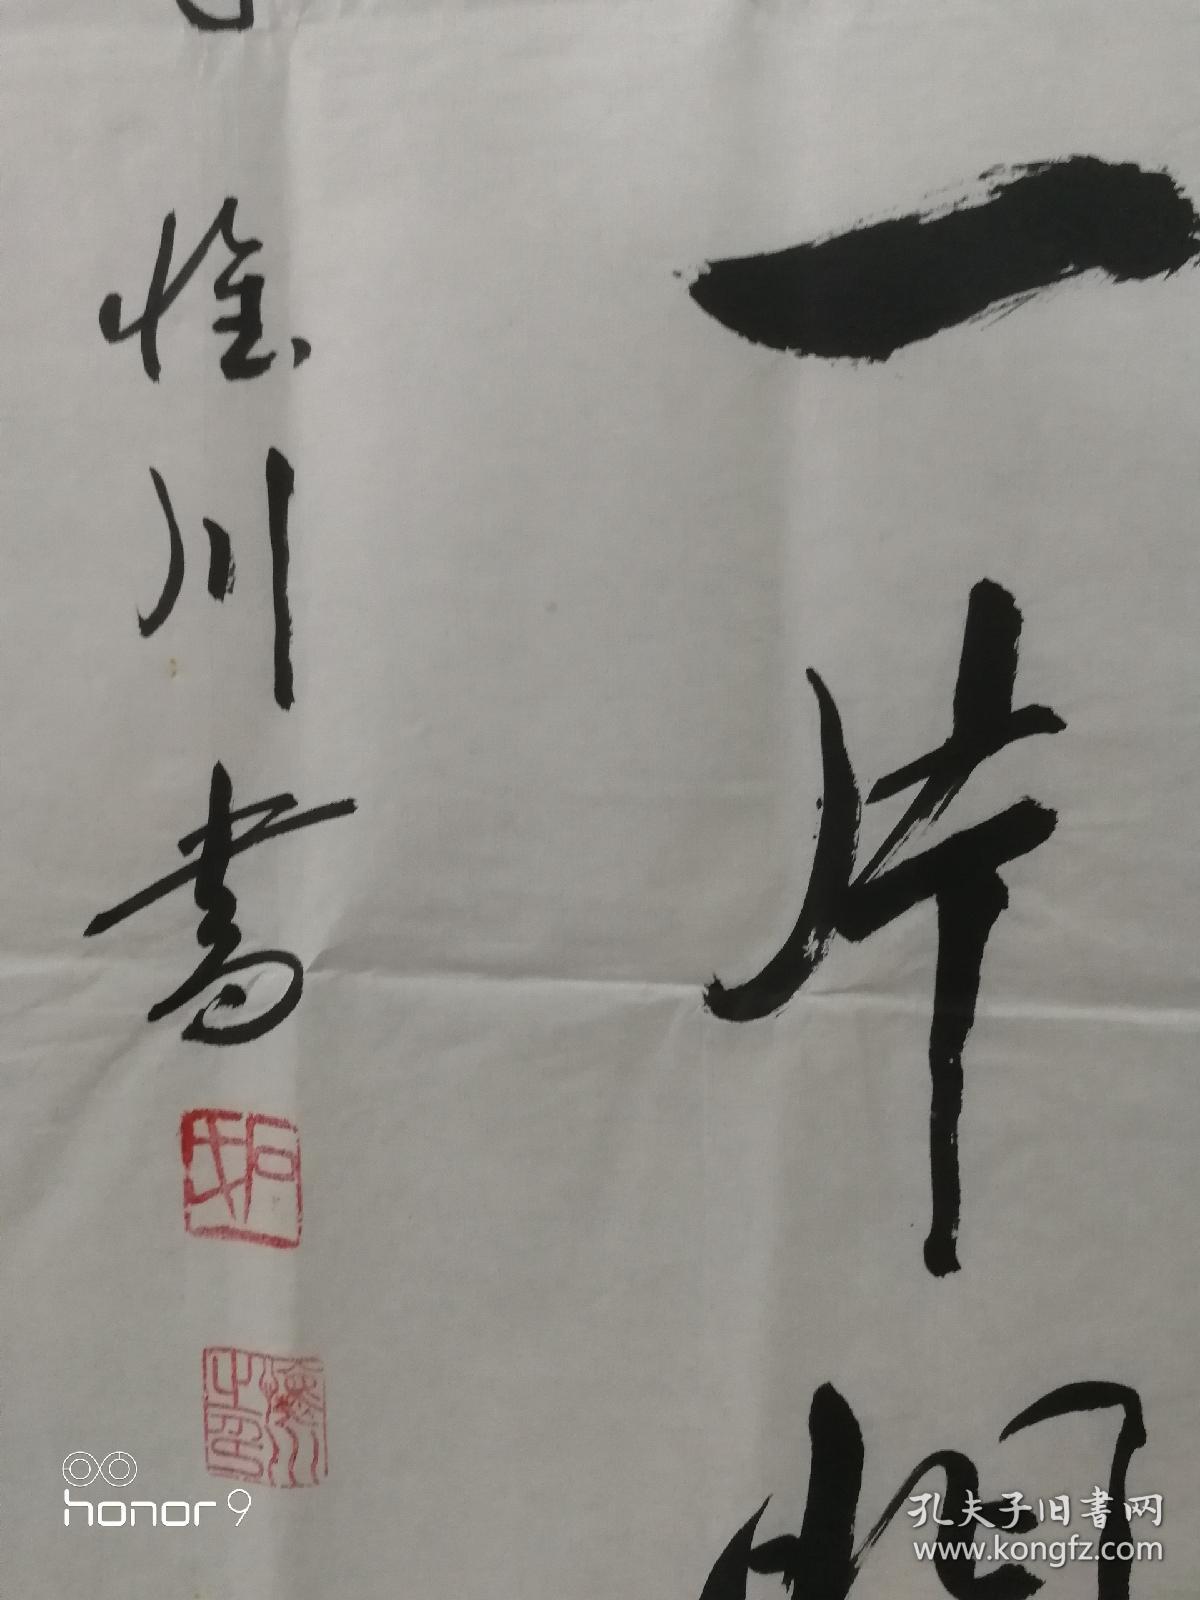 一片
懷川書
懷川之印
honor 9
孔夫子旧書网
www.kongfz.com